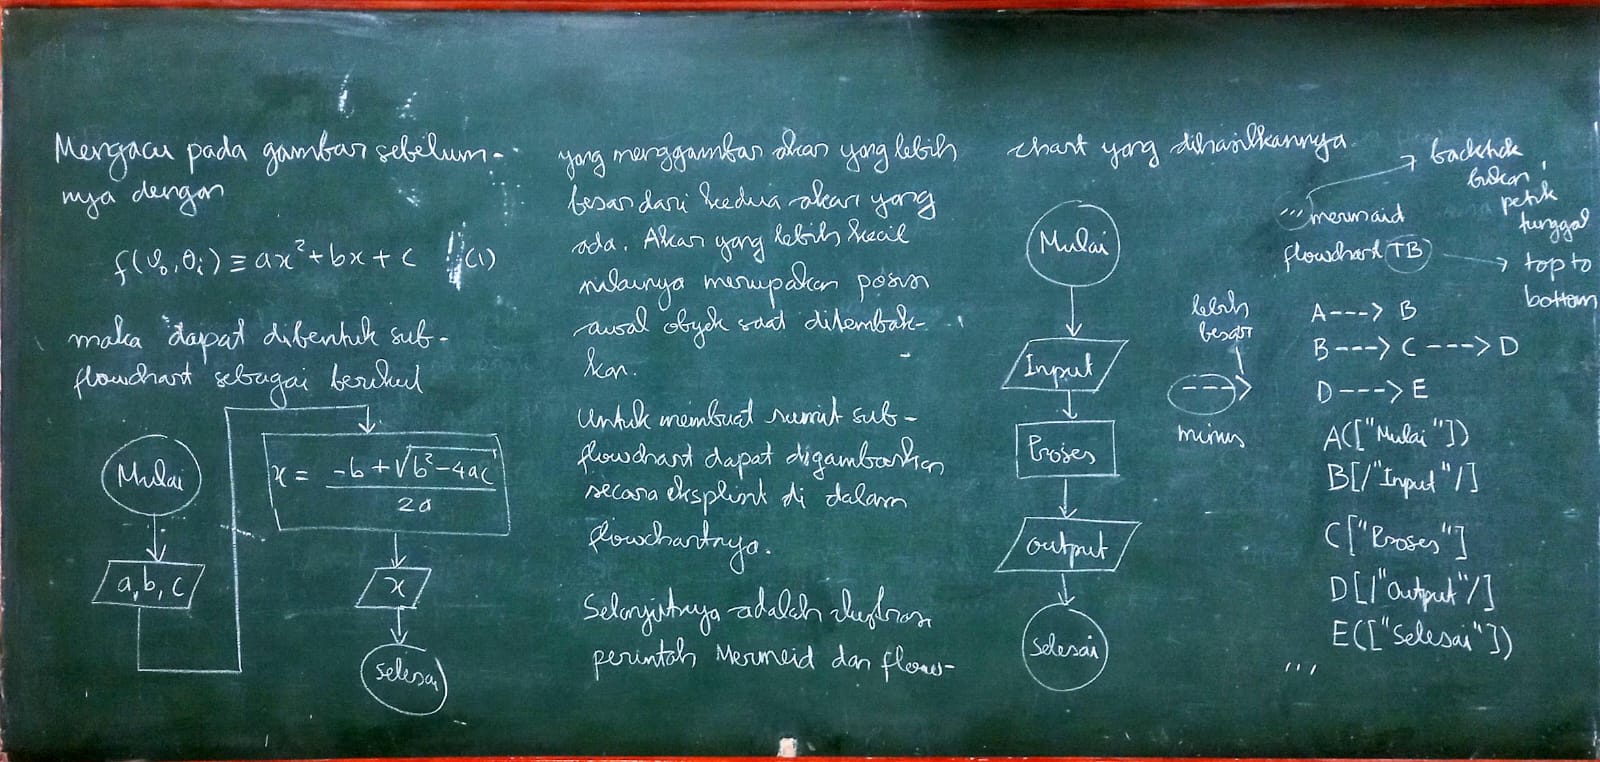 Mengacu pada gambar sebelum-
nya dengan
f(v₀, θᵢ) ≡ ax² + bx + c (1)
maka dapat dibentuk sub-
flowchart sebagai berikut
Mulai
a, b, c
x = -b + √b² - 4ac
2a
x
Selesai
yang menggambar akar yang lebih
besar dari kedua akar yang
ada. Akar yang lebih kecil
nilainya merupakan posisi
awal obyek saat ditembak-
kan.
Untuk membuat rumit sub-
flowchart dapat digambarkan
secara eksplisit di dalam
flowchartnya.
Selanjutnya adalah ilustrasi
perintah Mermeid dan flow-
chart yang dihasilkannya.
Mulai
Input
Proses
output
Selesai
lebih
besar
--->
minus
backtick
bukan
petik
tunggal
```mermaid
flowchart TB
top to
bottom
A---> B
B---> C ---> D
D---> E
A(["Mulai"])
B[/"Input"/]
C["Proses"]
D[/"Output"/]
E(["Selesai"])
```